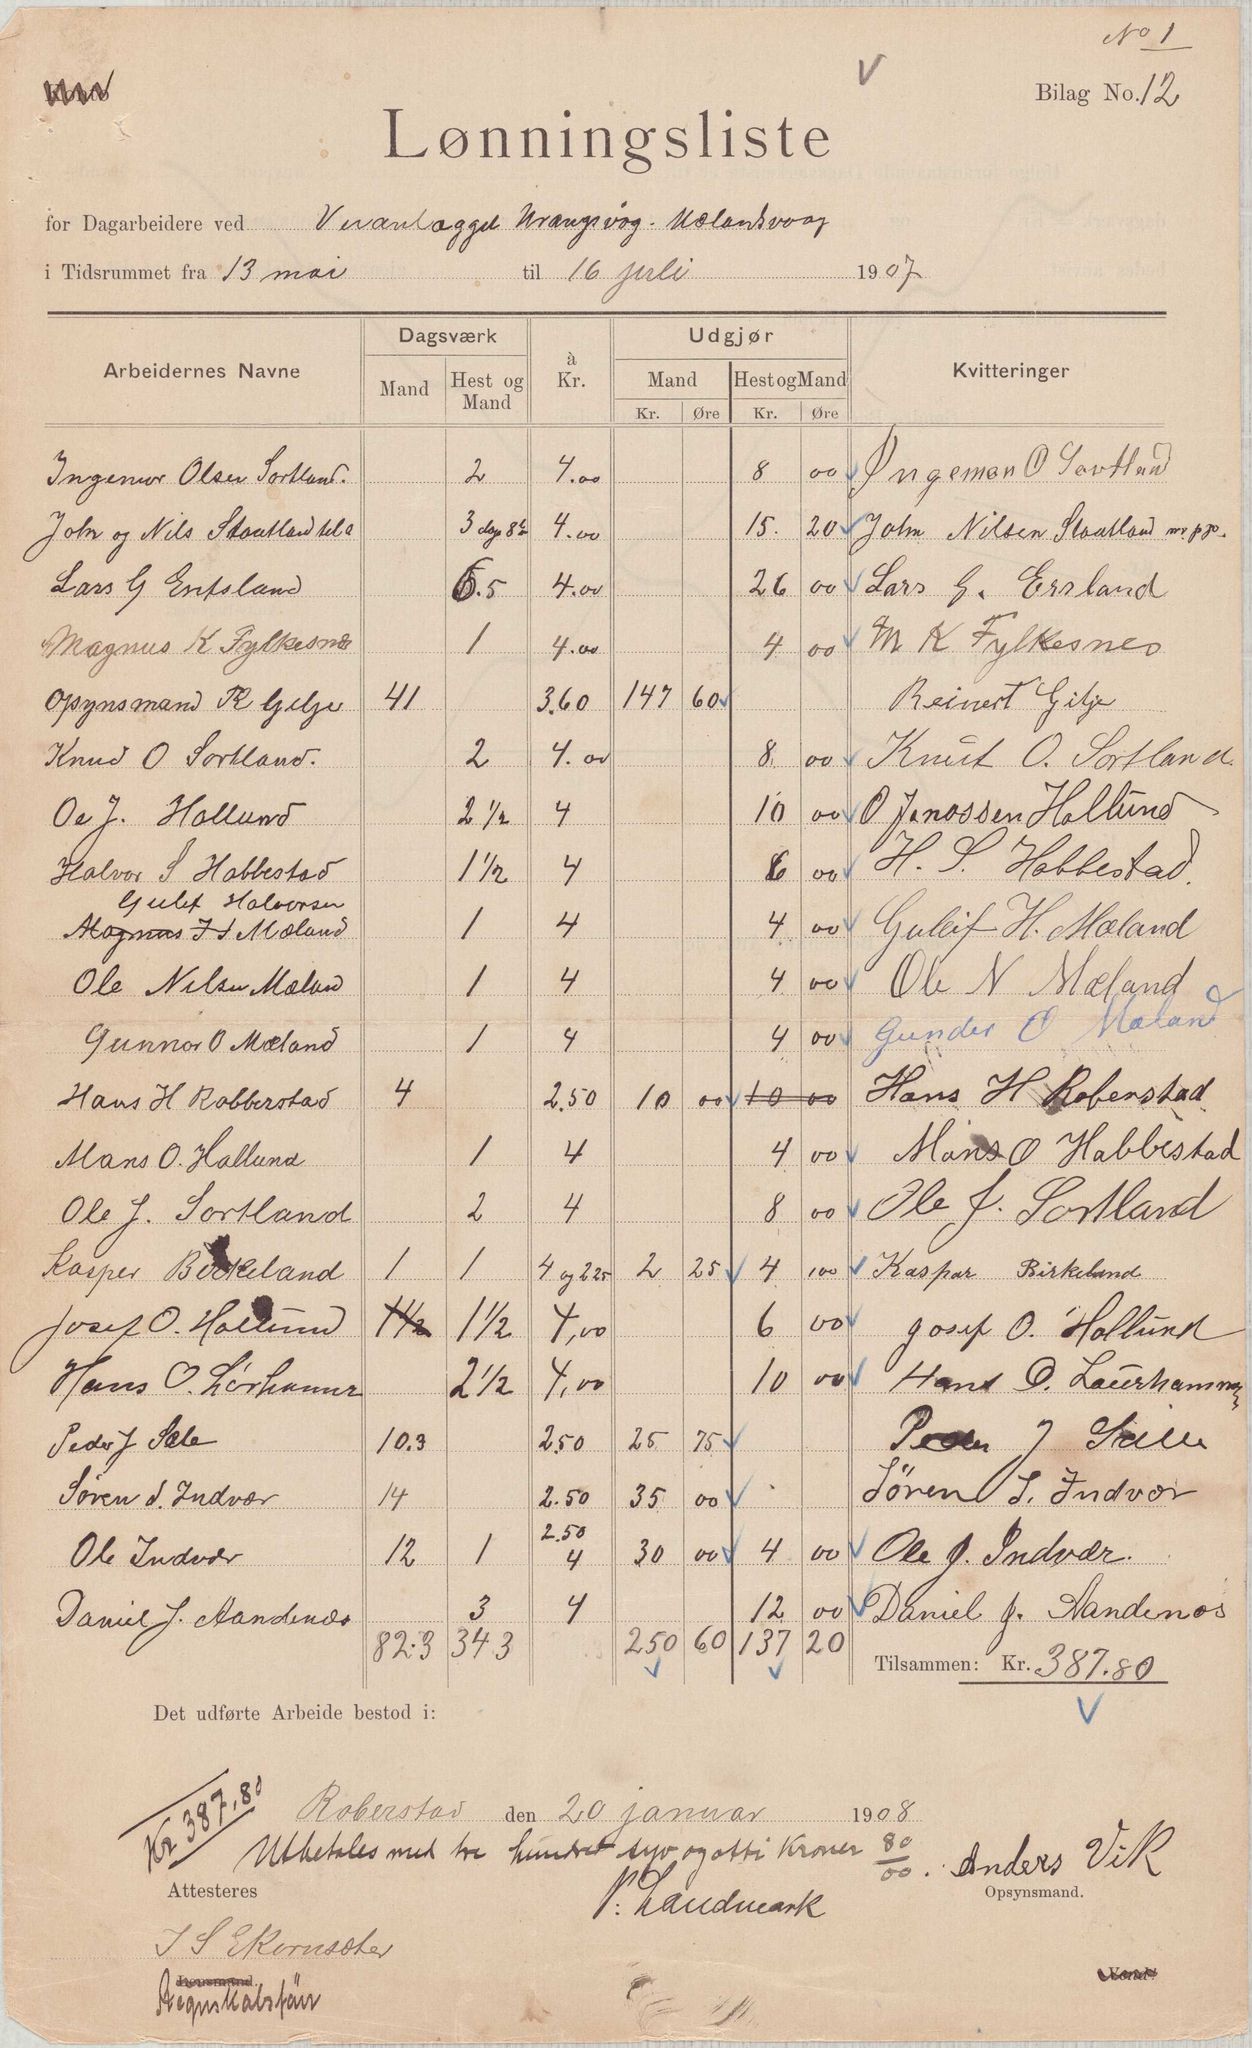 No 1
Konto
Bilag No. 12
Lønningsliste
for Dagarbeidere ved Veranlægget Vrangsvåg - Mælandsvaag
i Tidsrummet fra 13 mai til 16 juli 1907
Arbeidernes Navne Dagsværk à Kr. Udgjør Kvitteringer
Mand Hest og Mand Mand Hest og Mand
Kr. Øre Kr. Øre
Ingemor Olsen Sortland. 2 4.00 8 00 Ingeman O Sortland
John og Nils Staatland 3 dag 8 t 4.00 15. 20 John Nilsen Staatland
Lars G Entsland 6.5 4.00 26 00 Lars G. Ersland
Magnus K Fylkesnes 1 4.00 4 00 M K Fylkesnes
Opsynsmand R Gilje 41 3.60 147 60 Reinert Gilje
Knud O Sortland. 2 4.00 8 00 Knut O. Sortland
Oe J. Hollund 2 1/2 4 10 00 O Jonassen Hollund
Halvor S Habbestad 1 1/2 4 6 00 H. S. Habbestad.
Gulef Halvorsen
Magnus H Mæland 1 4 4 00 Guleif H. Mæland
Ole Nilsen Mæland 1 4 4 00 Ole N Mæland
Gunnar O Mæland 1 4 4 00 Gunder O Mæland
Hans H Robberstad 4 2.50 10 00 10 00 Hans H Roberstad
Mans O. Hallund 1 4 4 00 Mons O Habbestad
Ole J. Sortland 2 4 8 00 Ole J. Sortland
Kasper Birkeland 1 1 4 og 2 25 2 25 4 00 Kaspar Birkeland
Josef O. Hollund 1 1/2 1 1/2 4,00 6 00 Josef O. Hollund
Hans O. Lørhamer 2 1/2 4,00 10 00 Hans O. Laurhammer
Peder J Sæle 10.3 2.50 25 75 Peder J Sælle
Søren S. Indvær 14 2.50 35 00 Sören S. Indvær
2.50
Ole Indvær 12 1 4 30 00 4 00 Ole J. Indvær.
Daniel J. Aandenæs 3 4 12 00 Daniel J. Aandenæs
82.3 34 3 250 60 137 20 Tilsammen: Kr. 387.80
Det udførte Arbeide bestod i:
Kr 387,80
Roberstad den 20 januar 1908
Utbetales med tre hundred syv og otti Kroner 80/00. Anders Vik
Attesteres P. Landmark Opsynsmand.
J S Ekornsæter
Lensmand.
Regnskabsfører